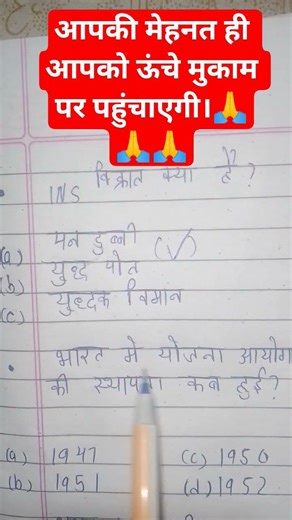 आपकी मेहनत ही
आपको ऊंचे मुकाम
पर पहुंचाएगी।🙏
🙏🙏
INS विक्रांत क्या है?
(a) पन डुब्बी
(b) युद्ध पोत (√)
(c) युद्धक विमान
भारत मे योजना आयोग
की स्थापना कब हुई?
(a) 1947 (c) 1950
(b) 1951 (d) 1952